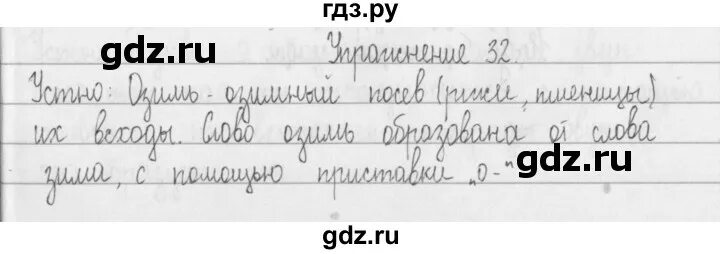 гдз.ру
gdz.ru
gdz.ru
Упражнение 32.
Устно: Озимь-озимный посев (ржи, пшеницы)
их всходы. Слово озимь образована от слова
зима, с помощью приставки „о-"
gdz.ru
gdz.ru